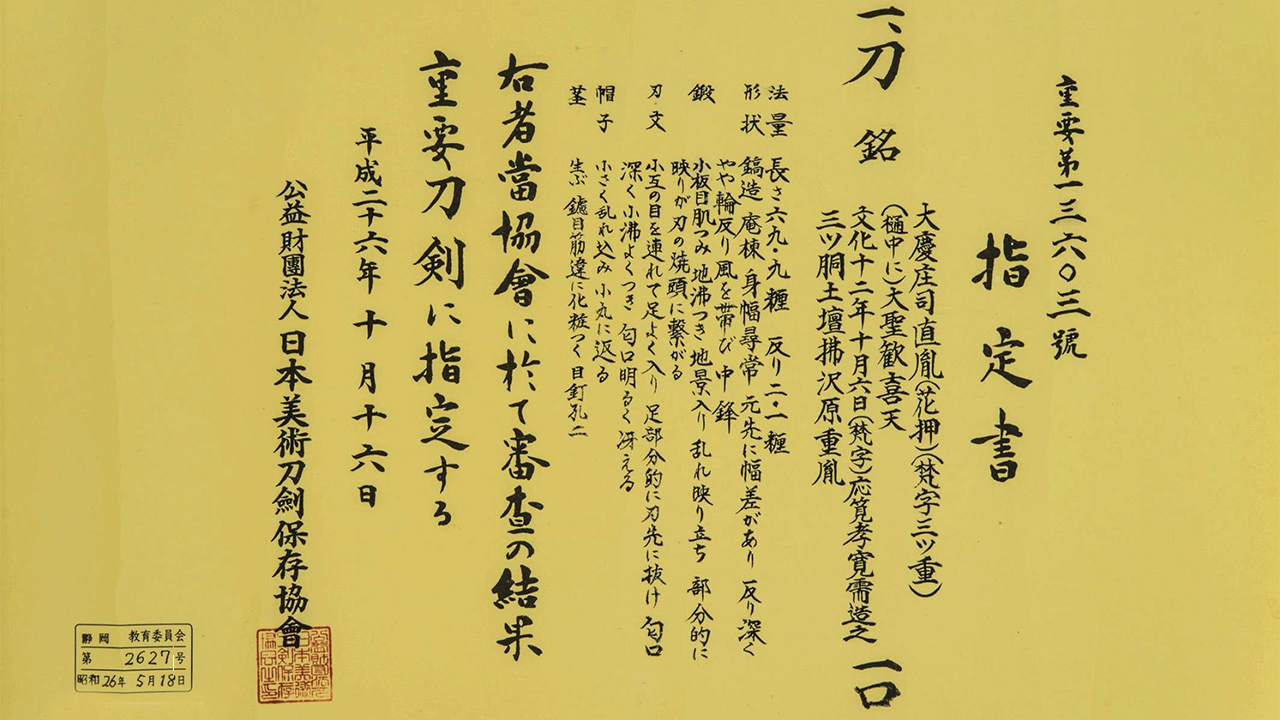 重要第一三六〇三號
指定書
一、刀 銘
大慶庄司直胤(花押)(梵字三ツ重)
(樋中に)大聖歓喜天
文化十二年十月六日(梵字)応筧孝寛需造之
三ツ胴土壇拂沢原重胤
一口
法量 長さ六九・九糎 反り二・一糎
形状 鎬造 庵棟 身幅尋常 元先に幅差があり 反り深く
やや輪反り風を帯び 中鋒
鍛 小板目肌つみ 地沸つき 地景入り 乱れ映り立ち 部分的に
映りが刃の焼頭に繋がる
刃文 小互の目を連れて足よく入り 足部分的に刃先に抜け 匂口
深く 小沸よくつき 匂口明るく冴える
帽子 小さく乱れ込み 小丸に返る
茎 生ぶ 鑢目筋違に化粧つく 目釘孔二
右者當協會に於て審査の結果
重要刀剣に指定する
平成二十六年十月十六日
公益財團法人日本美術刀劍保存協會
静岡 教育委員会
第 2627号
昭和26年 5月18日